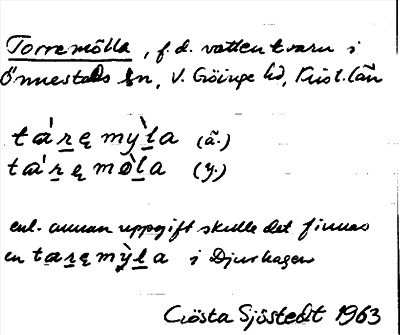 Torremölla, f.d. vattentvarn i
Önnestads sn, V. Göinge hd, Krist.län
tá̀ṟęmỳḻa (ä.)
tá̀ṟęmø̀ḻa (y.)
enl. annan uppgift skulle det finnas
en taṟęmỳḻa i Djurhagen
Gösta Sjöstedt 1963